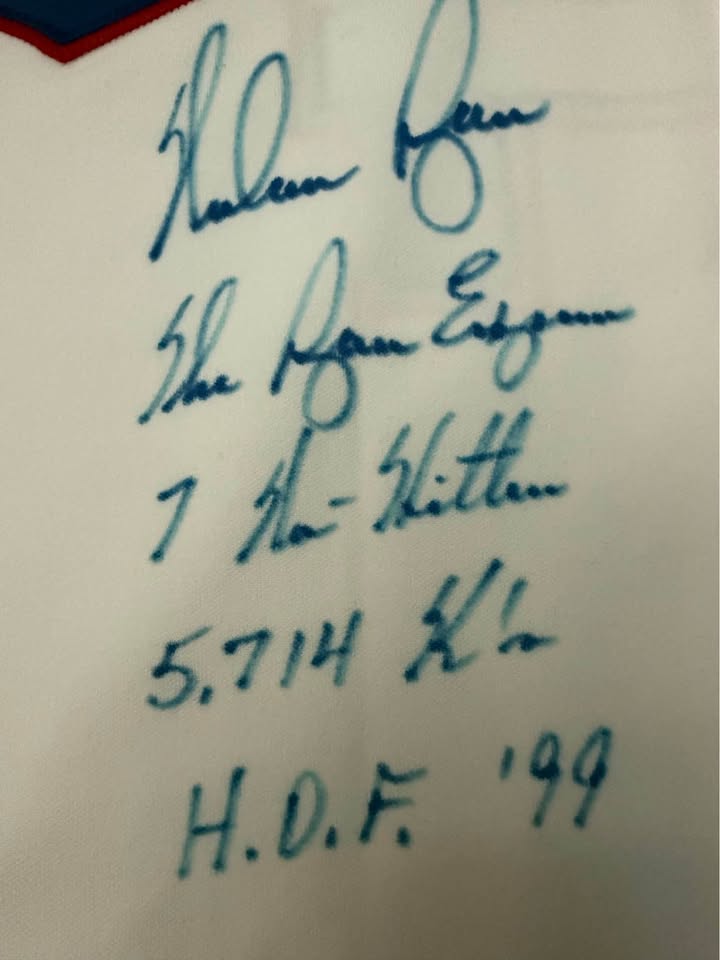 Nolan Ryan
The Ryan Express
7 No-Hitters
5,714 K's
H.O.F. '99